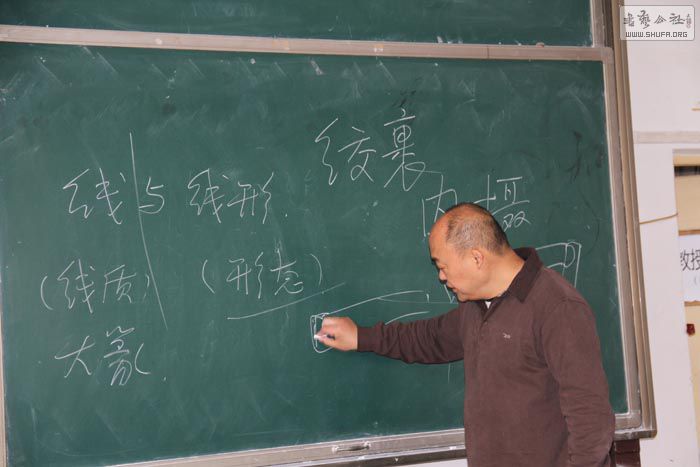 绞裹
线与线形
内擫
(线质)
(形态)
大篆
书艺公社
WWW.SHUFA.ORG
教授